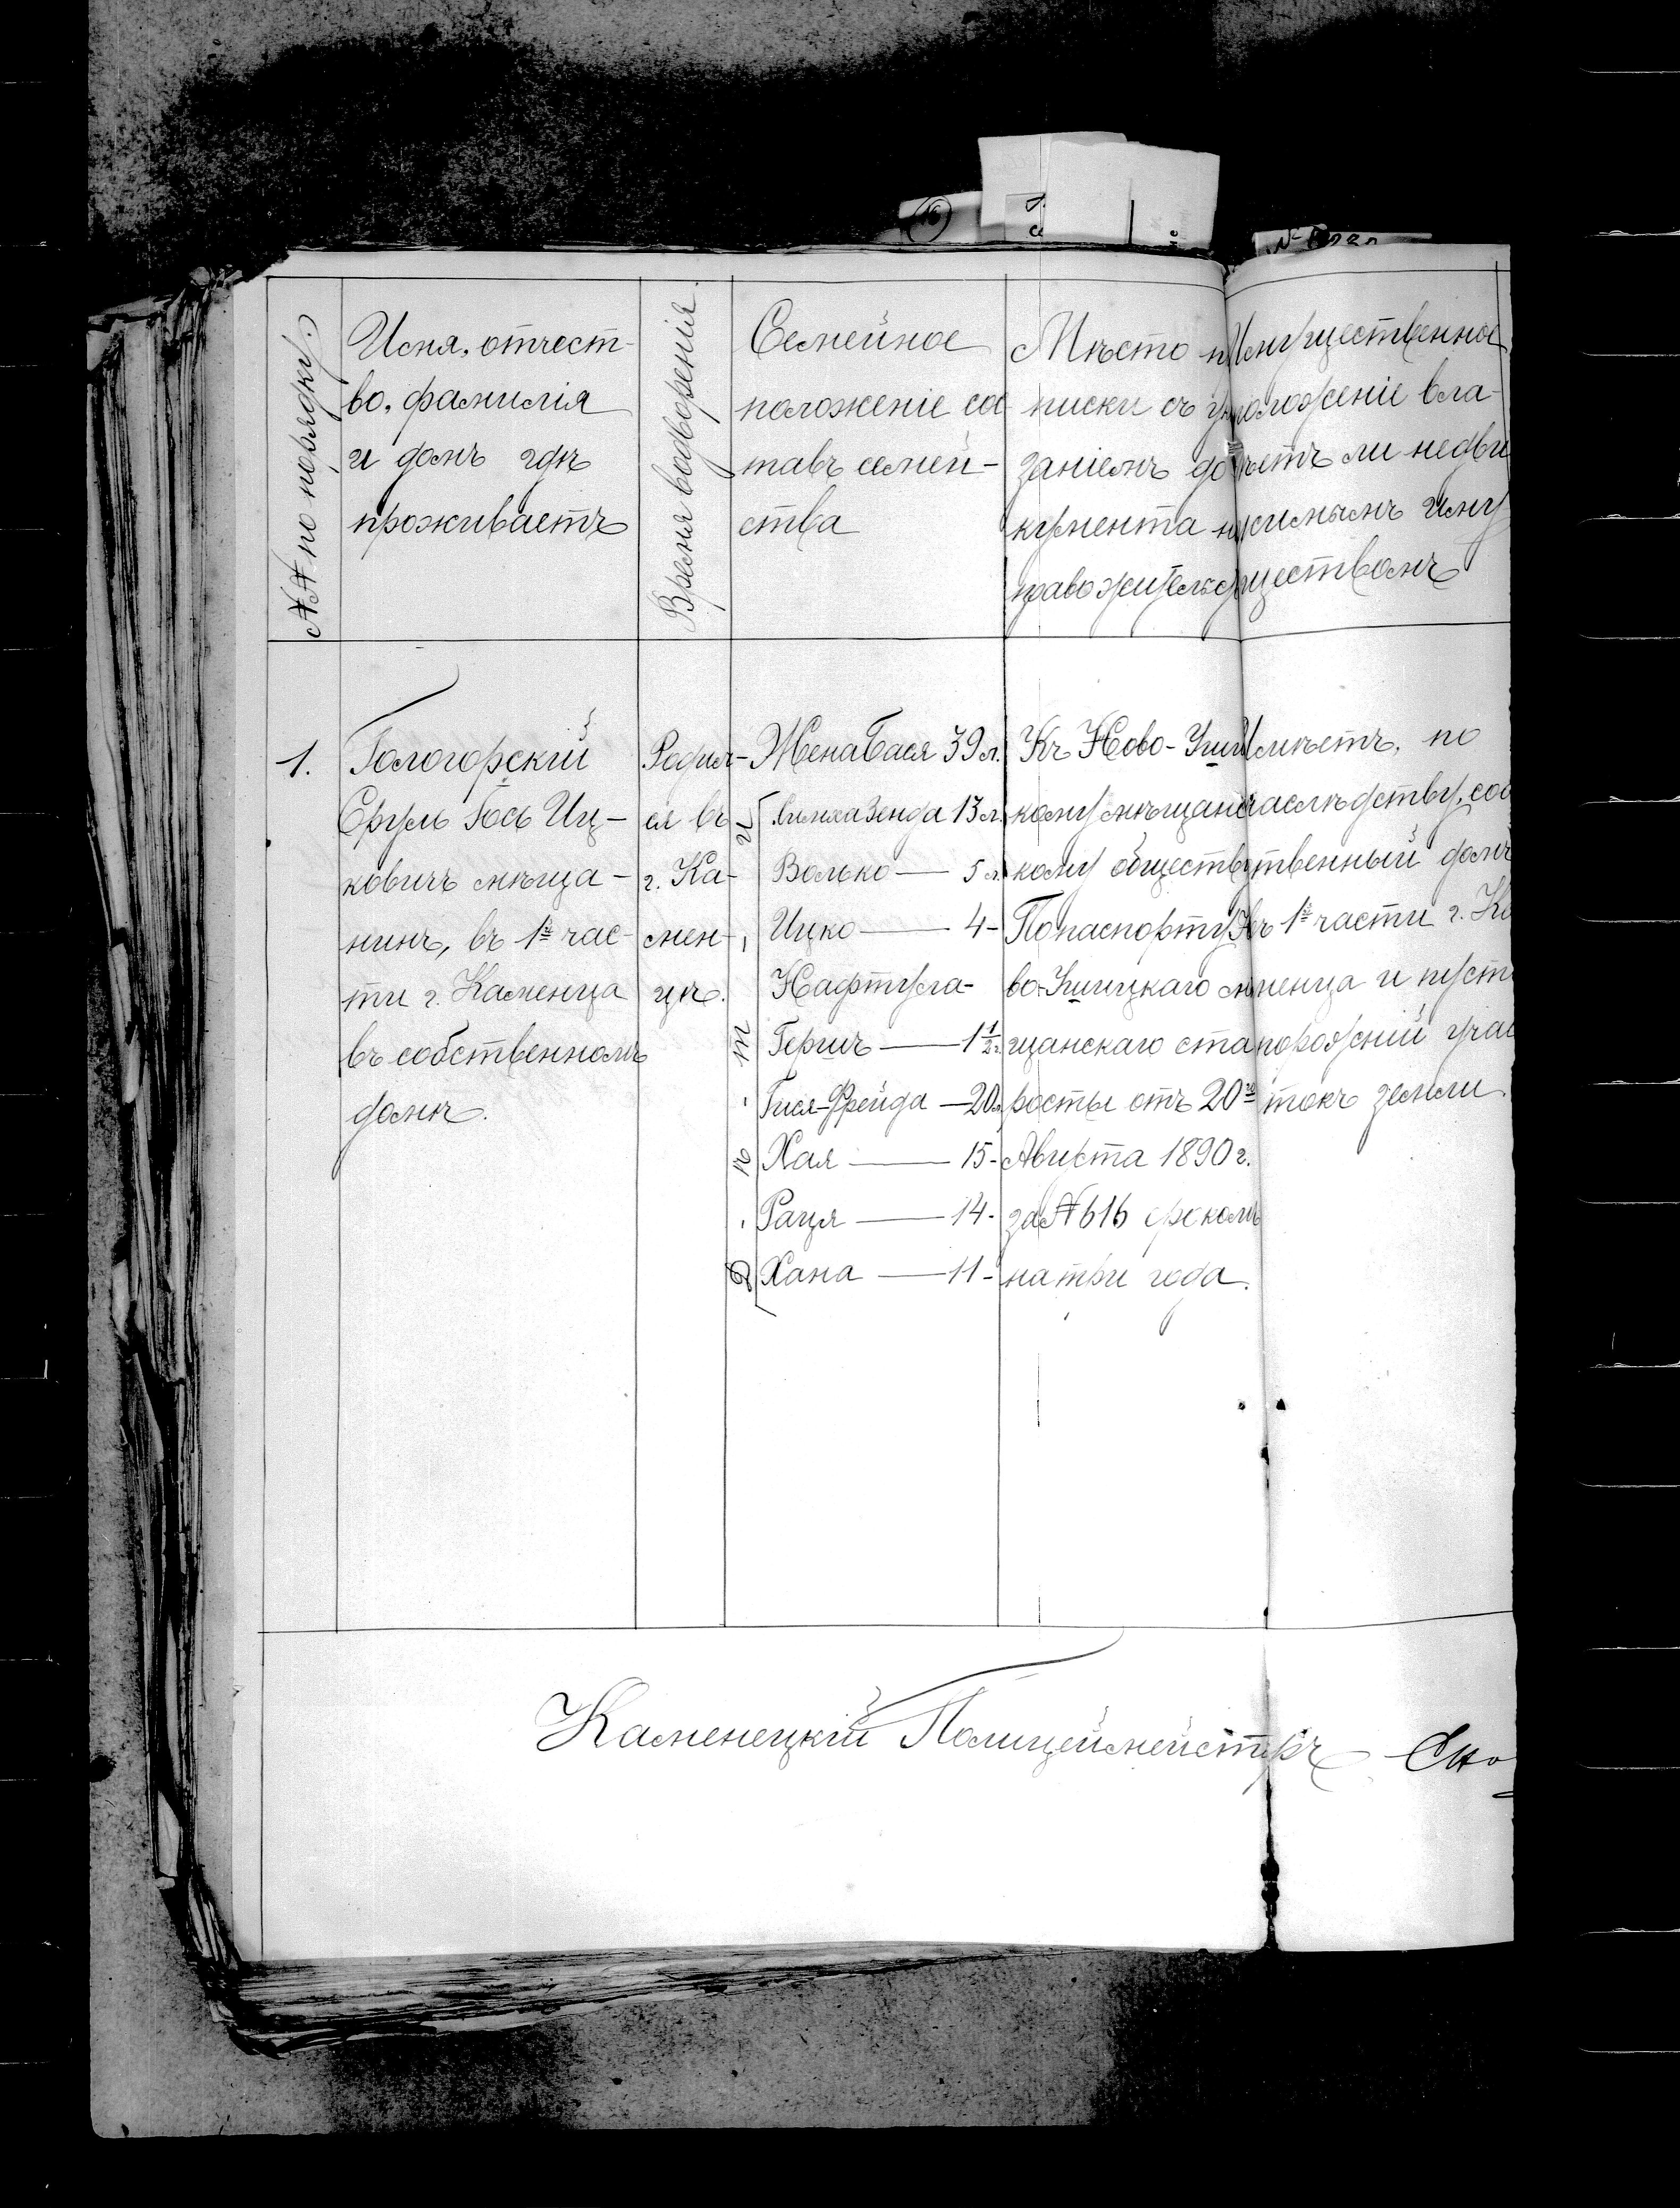 №№ по порядку.
Имя, отчест-
во, фамилія
и домъ гдѣ
проживаетъ
Время водворенія.
Семейное
положеніе сос
тавъ семей-
ства
Мѣсто
писки съ
заніемъ до
кумента
право житель
Имущественное
положеніе вла-
ѣетъ ли недви
жимымъ иму
ществомъ
1.
Гологорскій
Сруль Іось Иц-
ковичъ мѣща-
нинъ, въ 1й час-
ти г. Каменца
въ собственномъ
домѣ.
Родил-
ся въ
г. Ка-
мен-
цѣ.
Жена Бася 39 л.
Зенда 13 л.
Волько — 5 л.
Ицко — 4 -
Нафтула-
Гершъ — 1 1/2 г.
Гися-Фрейда — 20 л.
Хая — 15 -
Рация — 14 -
Хана — 11 -
Д ѣ т и
Къ Ново-Ушиц
кому мѣщанс
кому обществ
По паспорту Но
во-Ушицкаго мѣ
щанскаго ста
росты отъ 20го
Августа 1890 г.
за № 616 срокомъ
на три года.
Имѣетъ, по
наслѣдству, соб
ственный домъ
въ 1й части г. Ка
менца и пусто
порожній учас
токъ земли.
Каменецкій Полицеймейстеръ